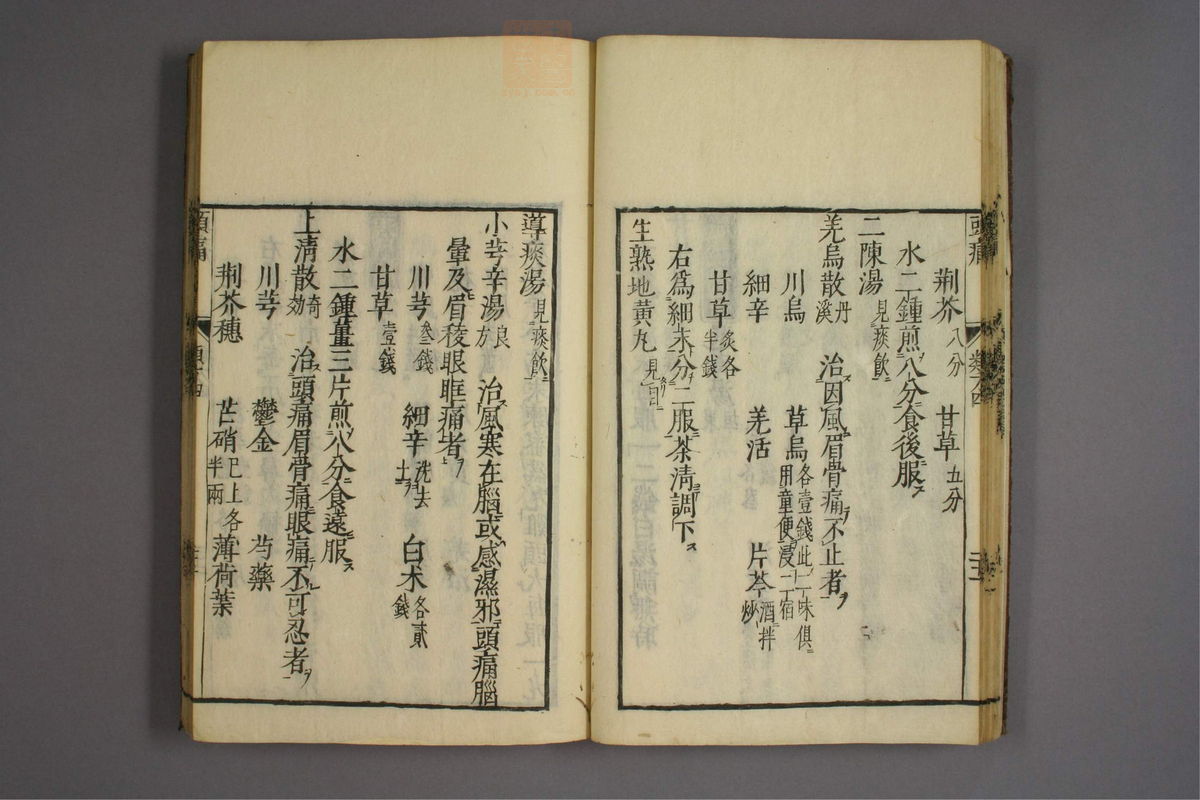 頭痛
荆芥八分　甘草五分
水二鍾煎八分食後服
二陳湯見痰飲
羌烏散丹溪　治因風眉骨痛不止者
川烏　草烏各壹錢此二味俱用童便浸一宿
細辛　羌活　片芩酒拌炒
甘草炙各半錢
右爲細末分二服茶清調下
生熟地黄丸見目
導痰湯見痰飲
小芎辛湯良方　治風寒在腦或感濕邪頭痛腦
暈及眉稜眼眶痛者
川芎叁錢　細辛洗去土　白朮各貳錢
甘草壹錢
水二鍾薑三片煎八分食遠服
上清散奇効　治頭痛眉骨痛眼痛不可忍者
川芎　鬱金　芍藥
荆芥穗　芒硝已上各半兩　薄荷葉
頭痛